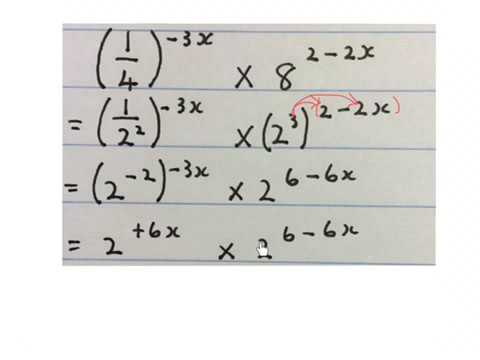 (1/4)^{-3x} × 8^{2-2x}
= (1/2²)^{-3x} × (2³)^{(2-2x)}
= (2^{-2})^{-3x} × 2^{6-6x}
= 2^{+6x} × 2^{6-6x}